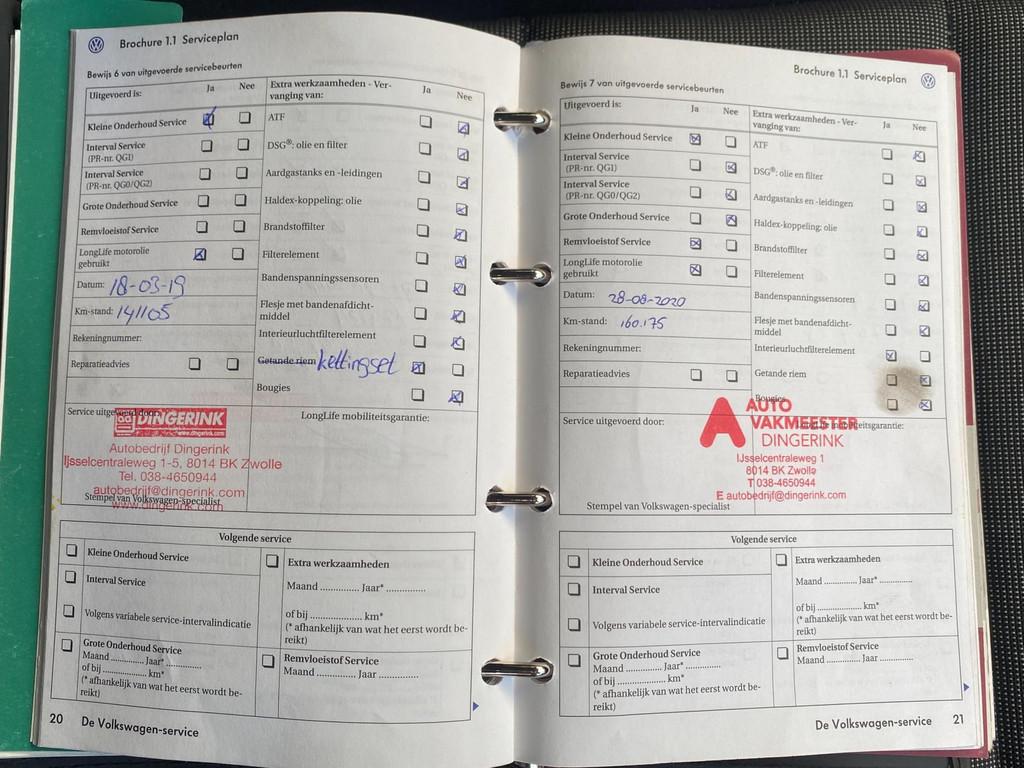 Brochure 1.1 Serviceplan
Bewijs 6 van uitgevoerde servicebeurten
Uitgevoerd is: Ja Nee
Kleine Onderhoud Service
Interval Service
(PR-nr. QG1)
Interval Service
(PR-nr. QG0/QG2)
Grote Onderhoud Service
Remvloeistof Service
LongLife motorolie
gebruikt
Datum: 18-03-19
Km-stand: 141105
Rekeningnummer:
Reparatieadvies
Extra werkzaamheden - Ver-
vanging van: Ja Nee
ATF
DSG®: olie en filter
Aardgastanks en -leidingen
Haldex-koppeling: olie
Brandstoffilter
Filterelement
Bandenspanningssensoren
Flesje met bandenafdicht-
middel
Interieurluchtfilterelement
Getande riem kettingset
Bougies
Service uitgevoerd door:
DINGERINK
www.dingerink.com
Autobedrijf Dingerink
IJsselcentraleweg 1-5, 8014 BK Zwolle
Tel. 038-4650944
autobedrijf@dingerink.com
www.dingerink.com
Stempel van Volkswagen-specialist
LongLife mobiliteitsgarantie:
Volgende service
Kleine Onderhoud Service
Interval Service
Volgens variabele service-intervalindicatie
Grote Onderhoud Service
Maand ............ Jaar* ............
of bij ................ km*
(* afhankelijk van wat het eerst wordt be-
reikt)
Extra werkzaamheden
Maand ............ Jaar* ............
of bij ................ km*
(* afhankelijk van wat het eerst wordt be-
reikt)
Remvloeistof Service
Maand ............ Jaar ............
20 De Volkswagen-service
Brochure 1.1 Serviceplan
Bewijs 7 van uitgevoerde servicebeurten
Uitgevoerd is: Ja Nee
Kleine Onderhoud Service
Interval Service
(PR-nr. QG1)
Interval Service
(PR-nr. QG0/QG2)
Grote Onderhoud Service
Remvloeistof Service
LongLife motorolie
gebruikt
Datum: 28-08-2020
Km-stand: 160.175
Rekeningnummer:
Reparatieadvies
Extra werkzaamheden - Ver-
vanging van: Ja Nee
ATF
DSG®: olie en filter
Aardgastanks en -leidingen
Haldex-koppeling: olie
Brandstoffilter
Filterelement
Bandenspanningssensoren
Flesje met bandenafdicht-
middel
Interieurluchtfilterelement
Getande riem
Bougies
Service uitgevoerd door:
LongLife mobiliteitsgarantie:
AUTO
VAKMEESTER
DINGERINK
IJsselcentraleweg 1
8014 BK Zwolle
T 038-4650944
E autobedrijf@dingerink.com
Stempel van Volkswagen-specialist
Volgende service
Kleine Onderhoud Service
Interval Service
Volgens variabele service-intervalindicatie
Grote Onderhoud Service
Maand ............ Jaar* ............
of bij ................ km*
(* afhankelijk van wat het eerst wordt be-
reikt)
Extra werkzaamheden
Maand ............ Jaar* ............
of bij ................ km*
(* afhankelijk van wat het eerst wordt be-
reikt)
Remvloeistof Service
Maand ............ Jaar ............
De Volkswagen-service 21